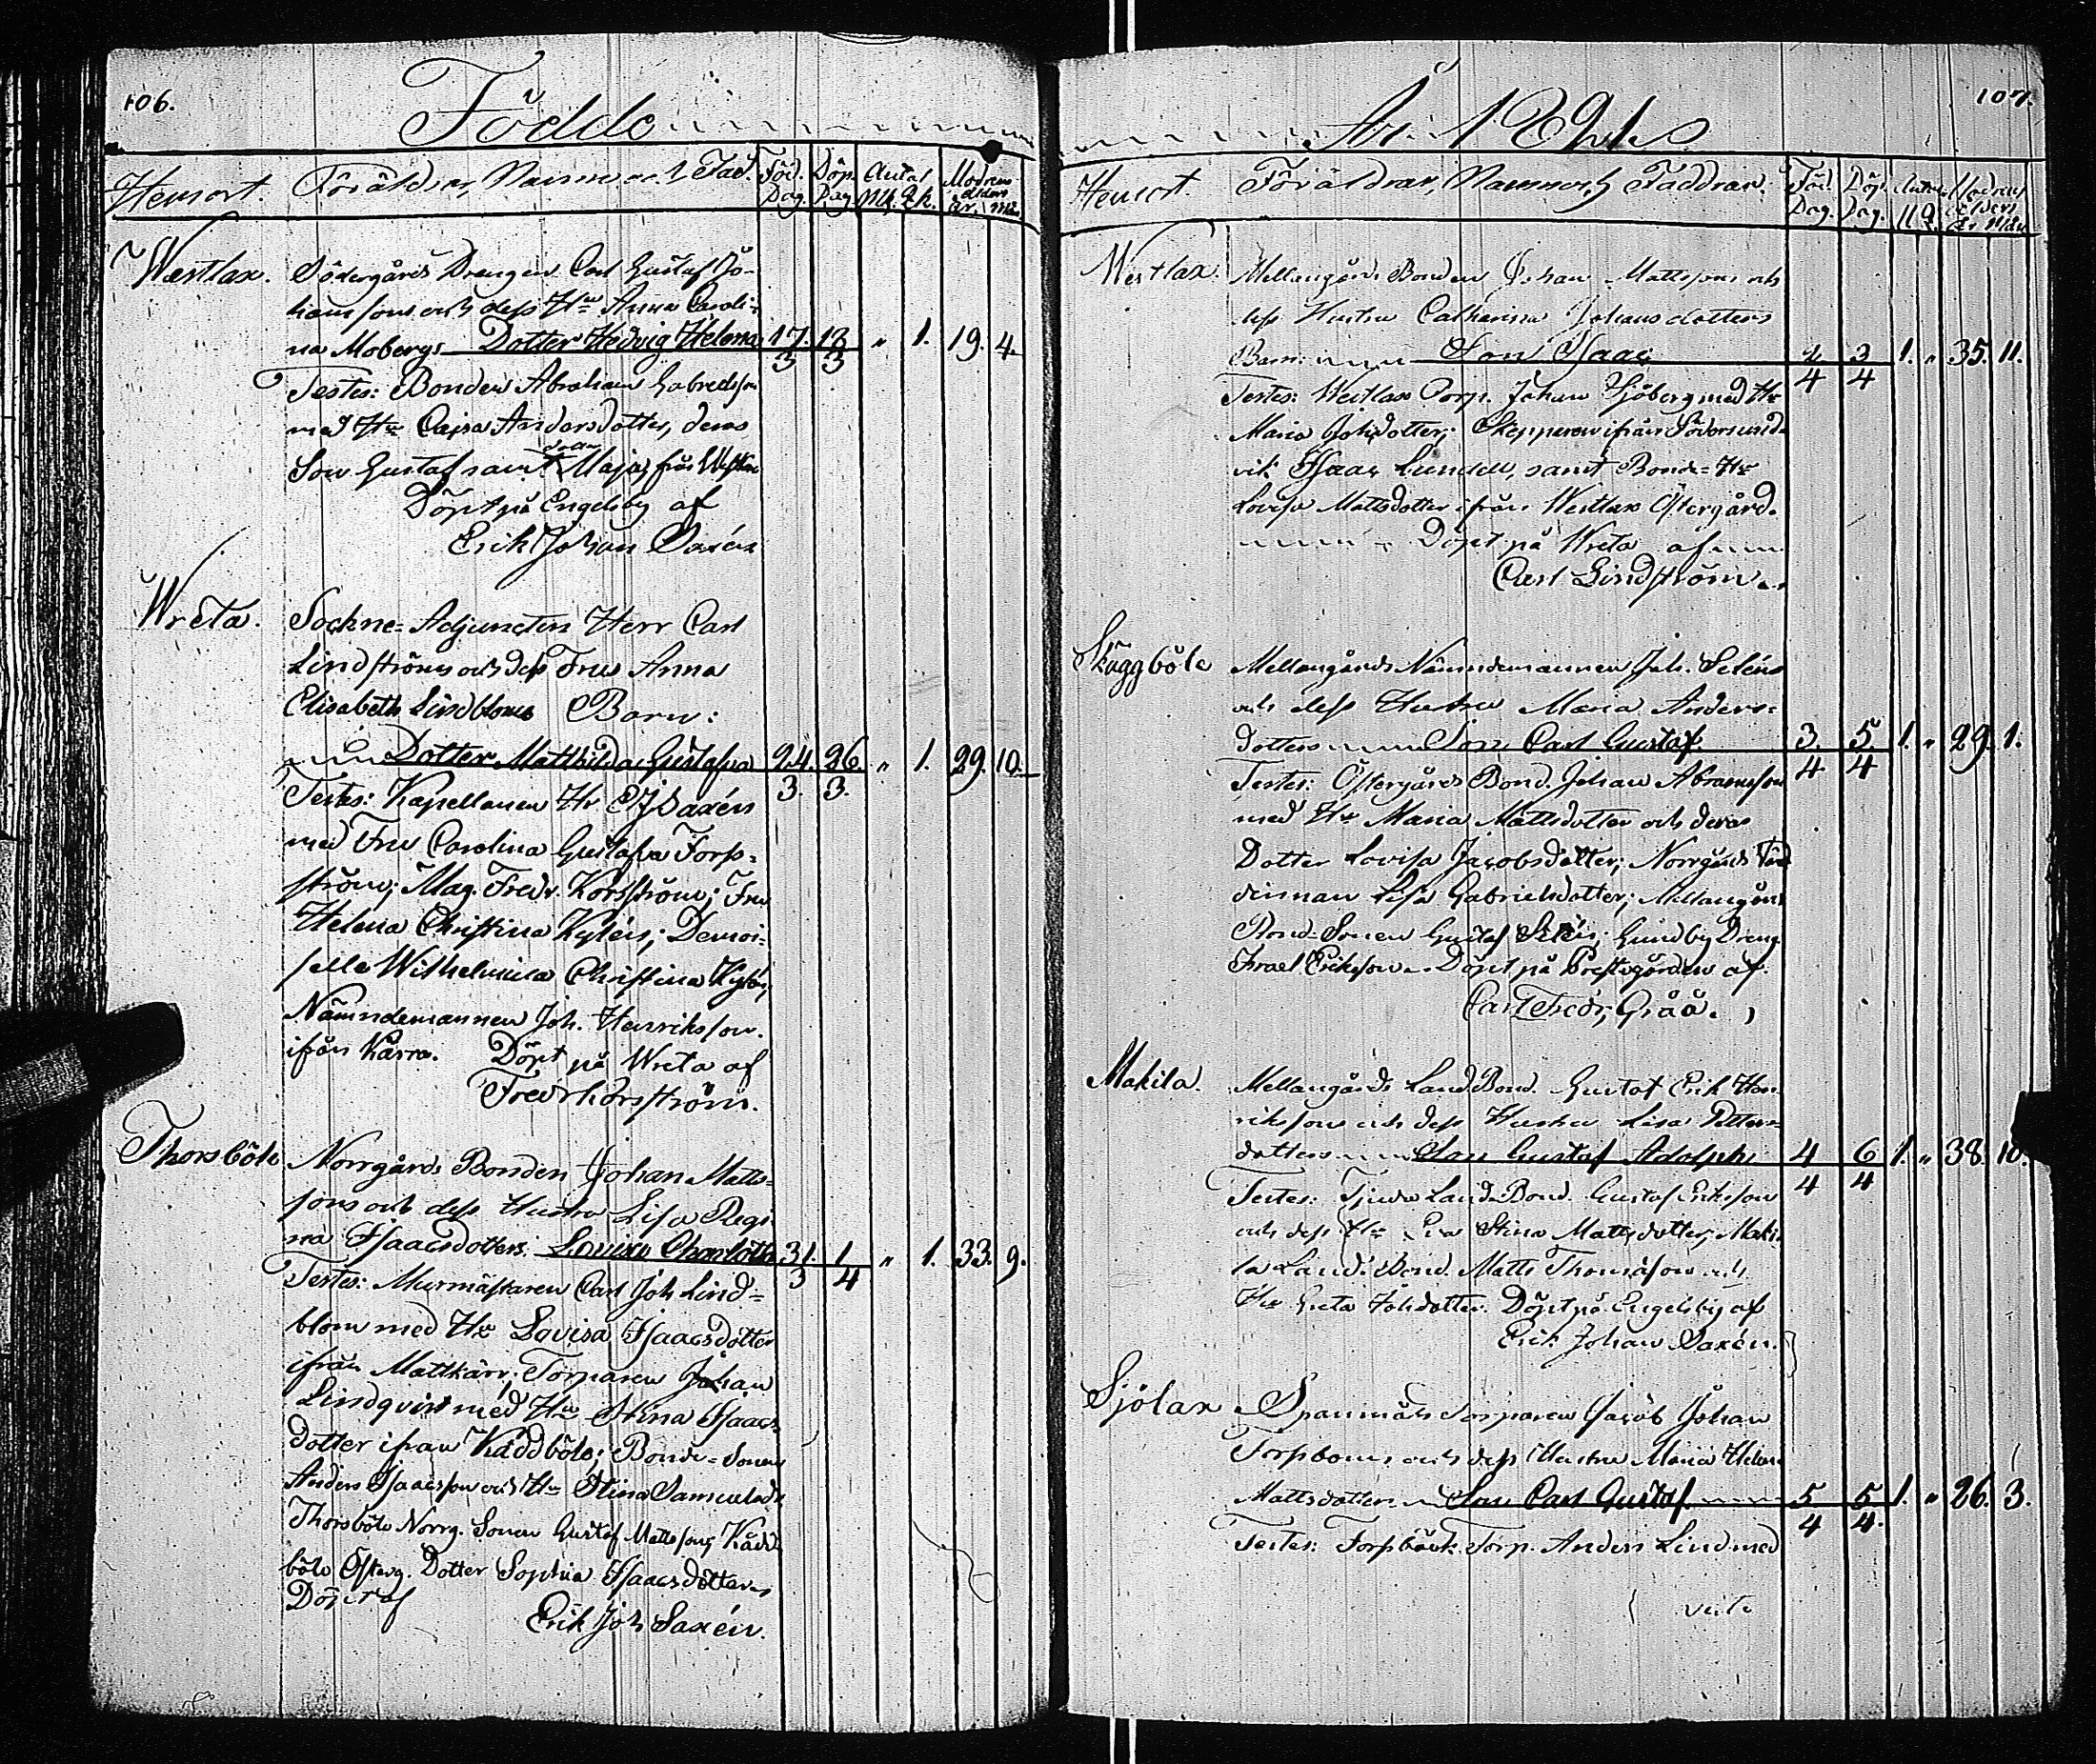 106.
Födde
Hemort. Föräldrar, Namn och Fad. Föd. Dag. Döp. Dag Antal Mk. Qk. Modrens ålder år. mån
Westlax. Södergårds Drengen Carl Gustaf Jo-
hanssons och dess Hu Anna Caroli-
na Mobergs Dotter Hedvig Helena 17. 18 " 1. 19. 4.
3 3
Testes: Bonden Abraham Gabrielsson
med Hu Cajsa Andersdotter, deras
Son Gustaf samt Maja, från Westlax
Döpt på Engelsby af
Erik Johan Saxén
Wreta. Sockne-Adjuncten Herr Carl
Lindströms och dess Fru Anna
Elisabeth Lindbloms Barn:
Dotter Mathilda Gustafva 24. 26. " 1. 29. 10.
3. 3.
Testes: Kapellanen Hr EJ Saxén
med Fru Carolina Gustafva Forss-
ström; Mag. Fredr. Korsström; Fru
Helena Christina Kyléns; Demoi-
selle Wilhelmina Christina Kylén,
Nämndemannen Joh. Henriksson
ifrån Kärra. Döpt på Wreta af
Fredr Korsström.
Thorsböle Norrgårds Bonden Johan Matts-
sons och dess Hustru Lisa Regi-
na Isaacsdotters Lovisa Charlotta 31. 1 " 1. 33. 9.
3 4
Testes: Murmästaren Carl Joh Lind-
blom med Hu Lovisa Isaacsdotter
ifrån Mattkärr; Torparen Johan
Lindqvist med Hu Stina Isaacs-
dotter ifrån Kåddböle; Bonde-Sonen
Anders Isaacsson och Hu Stina Samuelsdr
Thorsböle Norrg. Sonen Gustaf Mattsson, Kådd-
böle Österg. Dotter Sophia Isaacsdotter
Döpt af
Erik Joh Saxén.
107.
År 1845
Hemort. Föräldrar, Namn och Faddrar. Föd. Dag. Döp. Dag. Antal Modrens ålder
Westlax Mellangårds Bonden Johan Mattssons och
dess Hustru Catharina Johansdotters
Barn: Son Isaac 2 3 1. " 35. 11.
4 4
Testes: Westlax Torp. Johan Sjöberg med Hu
Maria Johsdotter; Skepparen ifrån Södersund-
vik Isaac Lundell, samt Bonde-Hu
Lovisa Mattsdotter ifrån Westlax Östergård.
Döpt på Wreta af
Carl Lindström.
Skäggböle Mellangårds Nämndemannen Joh. Seléns
och dess Hustru Maria Anders-
dotters Son Carl Gustaf. 3. 5. 1. " 29. 1.
4 4
Testes: Östergårds Bond. Johan Abramsson
med Hu Maria Mattsdotter och deras
Dotter Lovisa Jacobsdotter; Norrgårds
Lisa Gabrielsdotter; Mellangårds
Bond-Sonen Gustaf Selén; Gundby Dreng
Israel Eriksson. Döpt på Prestegården af
Carl Fredr. Gråå.
Makila. Mellangårds Land Bond. Gustaf Erik Hen-
rikssons och dess Hustru Lisa Petters-
dotters Son Gustaf Adolph 4 6 1. " 38. 10.
4 4
Testes: Land-Bond. Gustaf Eriksson
och dess Hu Eva Stina Mattsdotter, Maki-
la Land-Bond. Matts Thomasson och
Hu Greta Johsdotter. Döpt på Engelsby af
Erik Johan Saxén.
Sjölax Torparen Jacob Johan
Forsboms och dess Hustru Maria Helena
Mattsdotters Son Carl Gustaf 5 5 1. " 26. 3.
4 4.
Testes: Torp. Anders Lind med